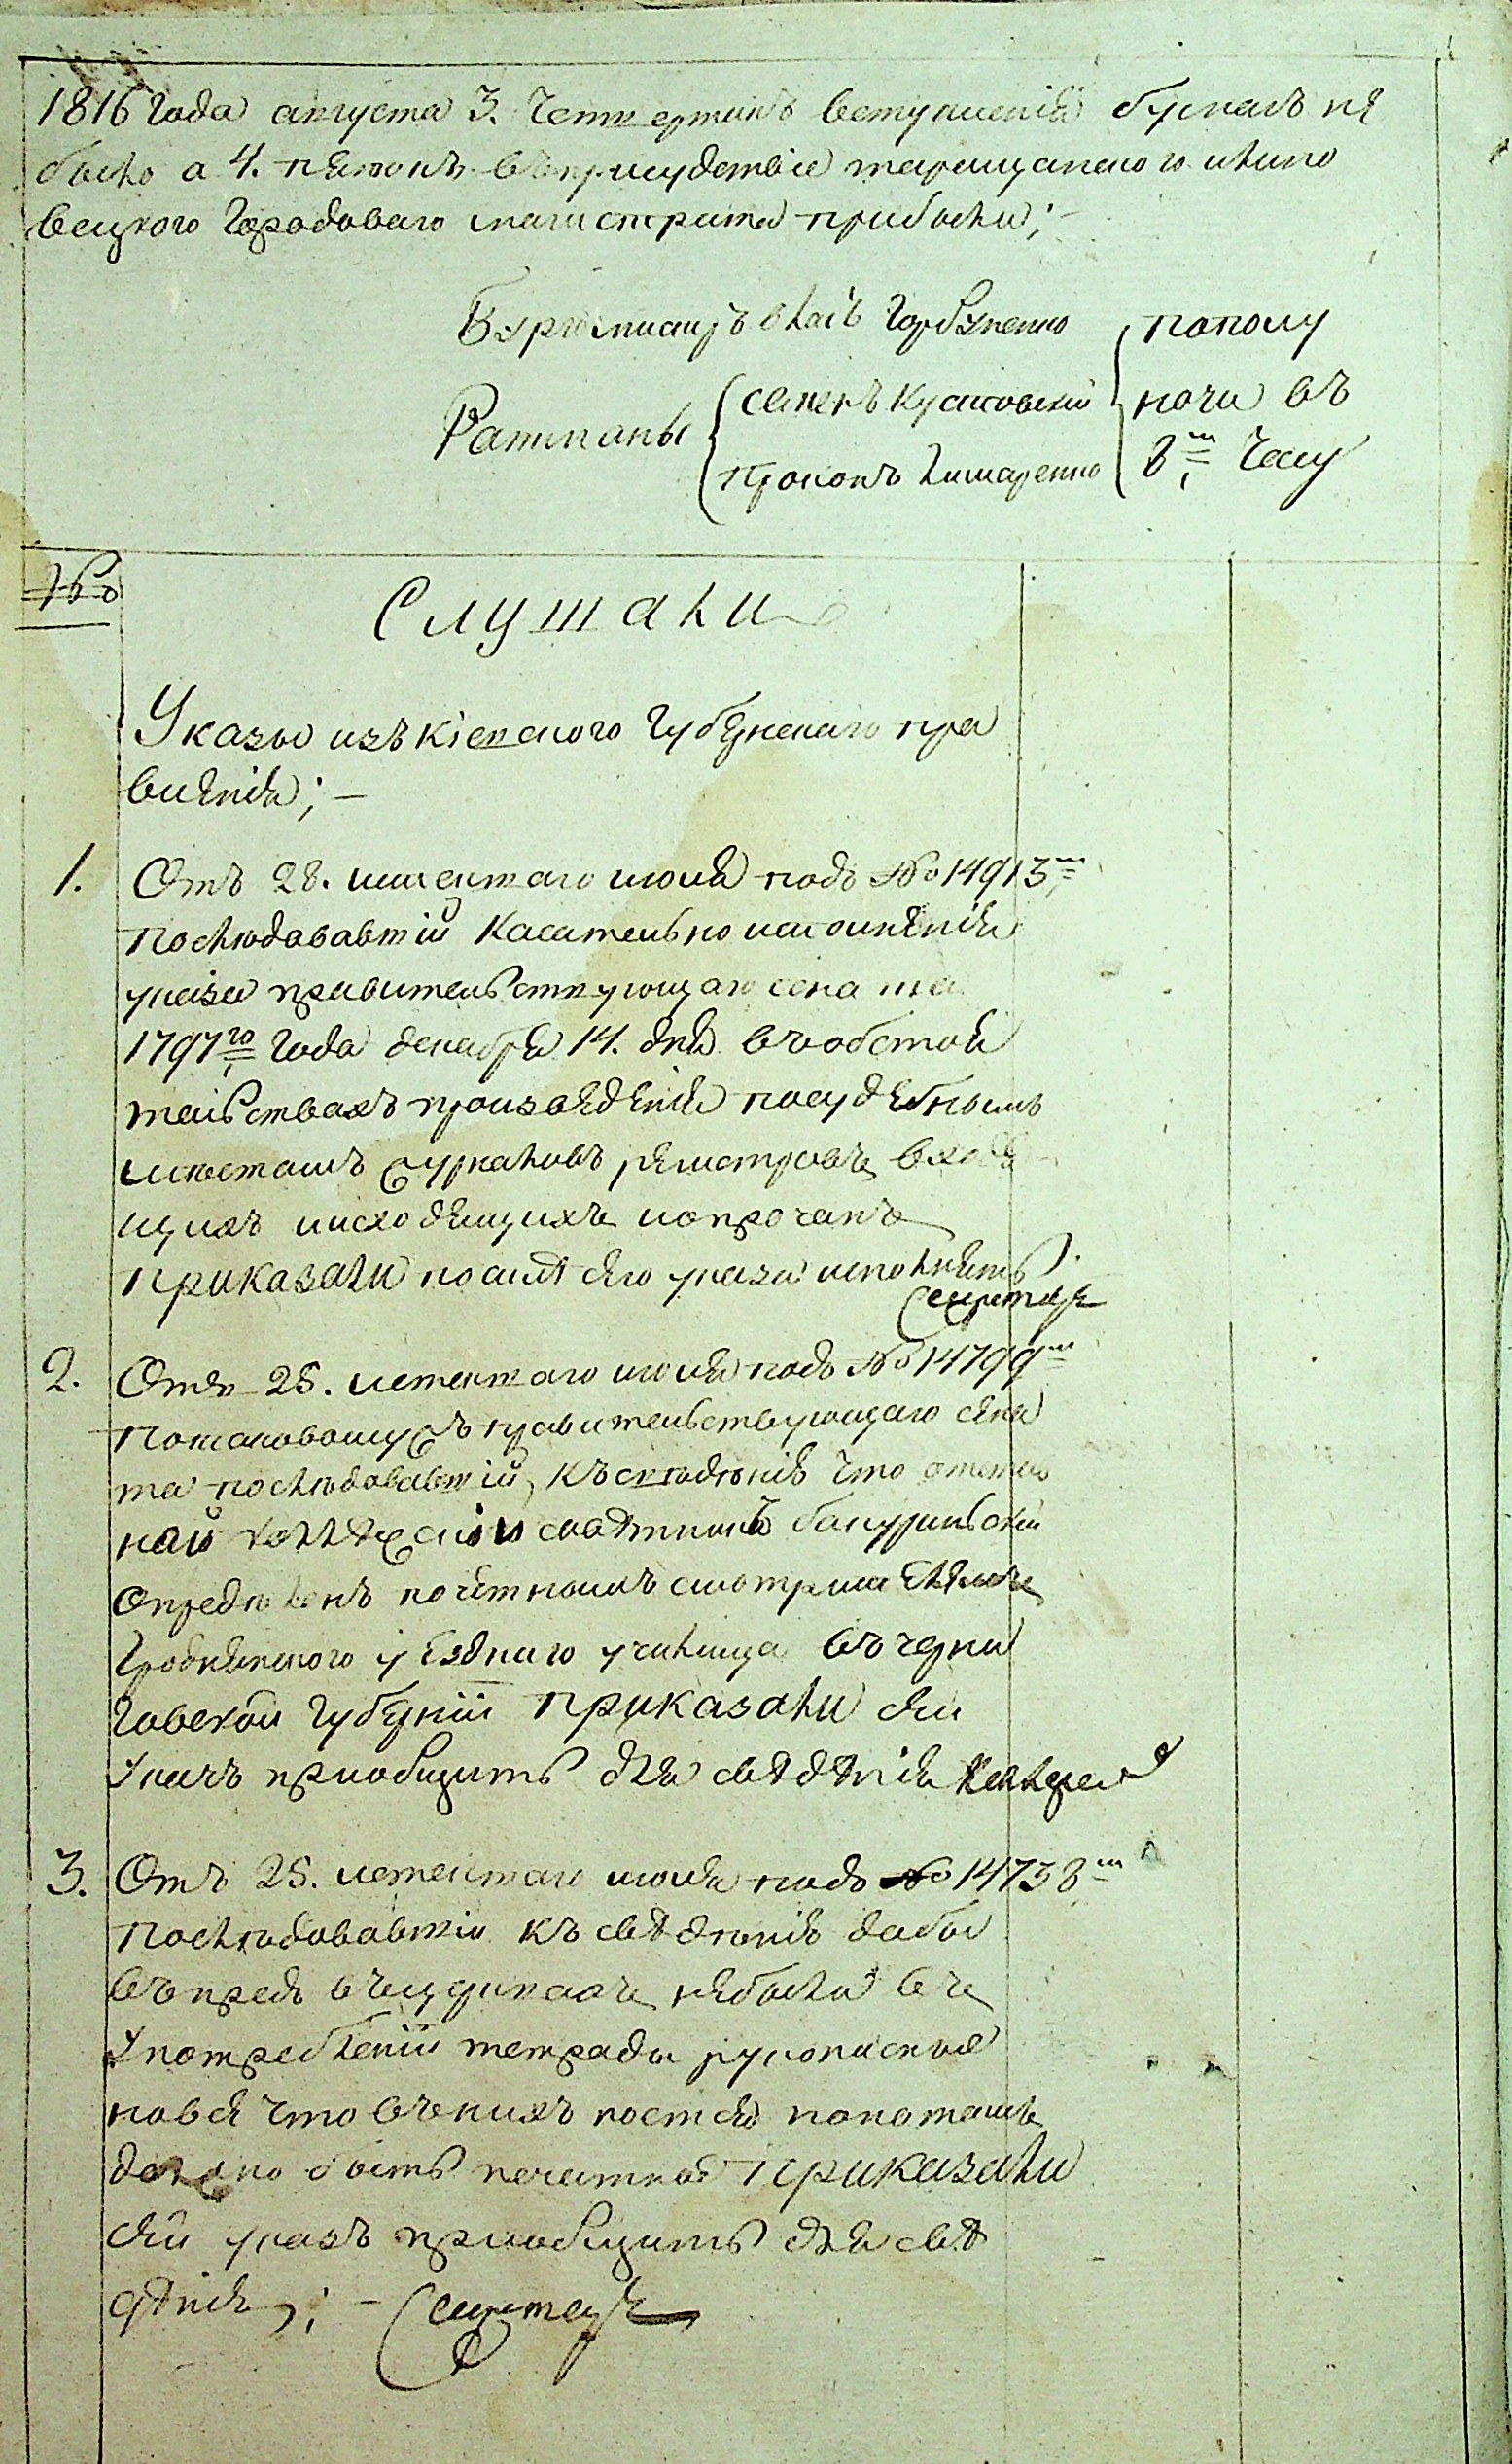 1816 года августа 3. Четвертикъ вступленій бумагъ не
было а 4. пятокъ въ присудствіе таращанского и липо
вецкого городоваго магистрата прибыли;
Бургмистръ Горбуненко
Ратманы
семенъ Кусковскій
прокопъ Лимаренко
пополу
ночи въ
8м часу
№
Слушали
Указы изъ кіевского губернскаго пра
вленія; —
1. Отъ 28. истектаго июля подъ № 14913м
последовавшій касательно исполненія
указа правительствующаго сената
1797го года декабря 14. дня въ обстоя
тельствахъ произведенія по судебнымъ
местамъ журналовъ регистровъ входя
щихъ и исходящихъ и о прочемъ
приказали по силе сего указа исполнять.
Секретарь
2. Отъ 25. истектаго июля подъ № 14799м
потаковомужъ правительствующаго сена
та последовавшій къ сведенію что отстав
ной колежскій советникъ бакуринскій
определенъ почетнымъ смотрителемъ
Гродненского уезднаго училища въ черни
говской губерніи приказали сей
указъ приобщить для сведенія
3. Отъ 25. истектаго июля подъ № 14738м
последовавшій къ сведенію дабы
въ предь въ церквахъ небыли въ
употребленіи тетрады рукописные
но вся что въ нихъ поется по нотамъ
должно быть печатное приказали
сей указъ приобщить для све
дения; — Секретарь